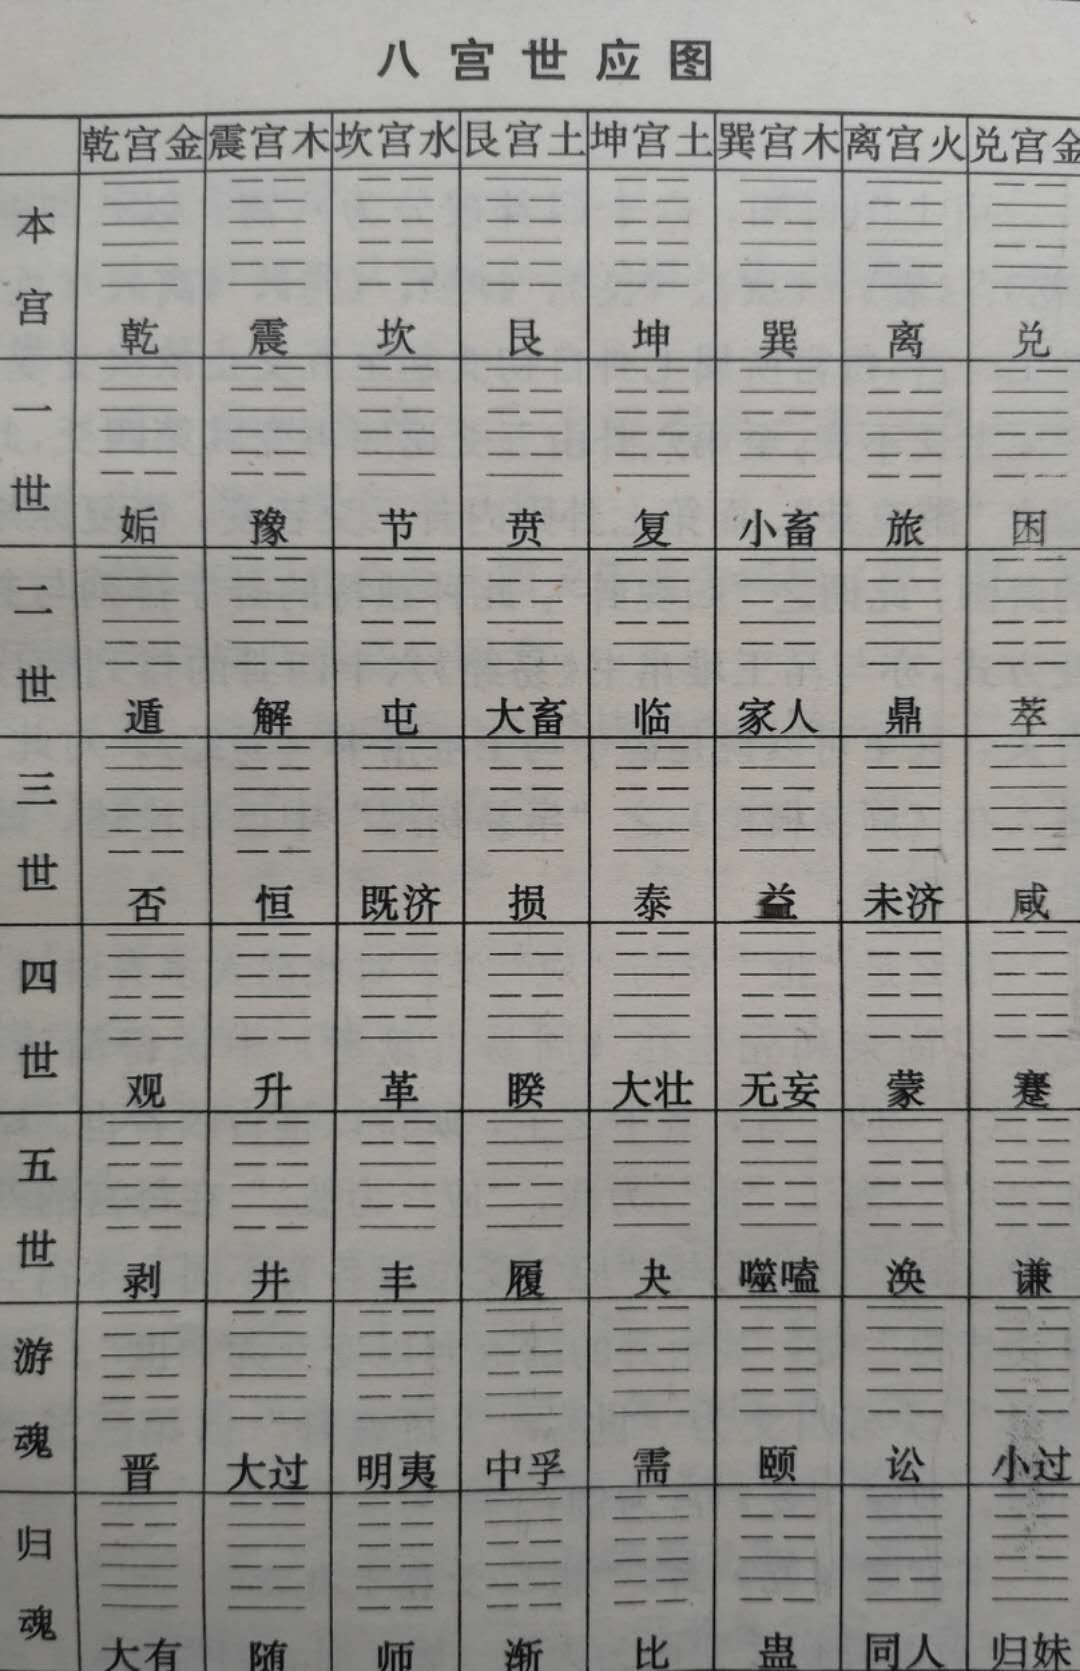 八宫世应图
乾宫金 震宫木 坎宫水 艮宫土 坤宫土 巽宫木 离宫火 兑宫金
本宫 乾 震 坎 艮 坤 巽 离 兑
一世 姤 豫 节 贲 复 小畜 旅 困
二世 遁 解 屯 大畜 临 家人 鼎 萃
三世 否 恒 既济 损 泰 益 未济 咸
四世 观 升 革 睽 大壮 无妄 蒙 蹇
五世 剥 井 丰 履 夬 噬嗑 涣 谦
游魂 晋 大过 明夷 中孚 需 颐 讼 小过
归魂 大有 随 师 渐 比 蛊 同人 归妹